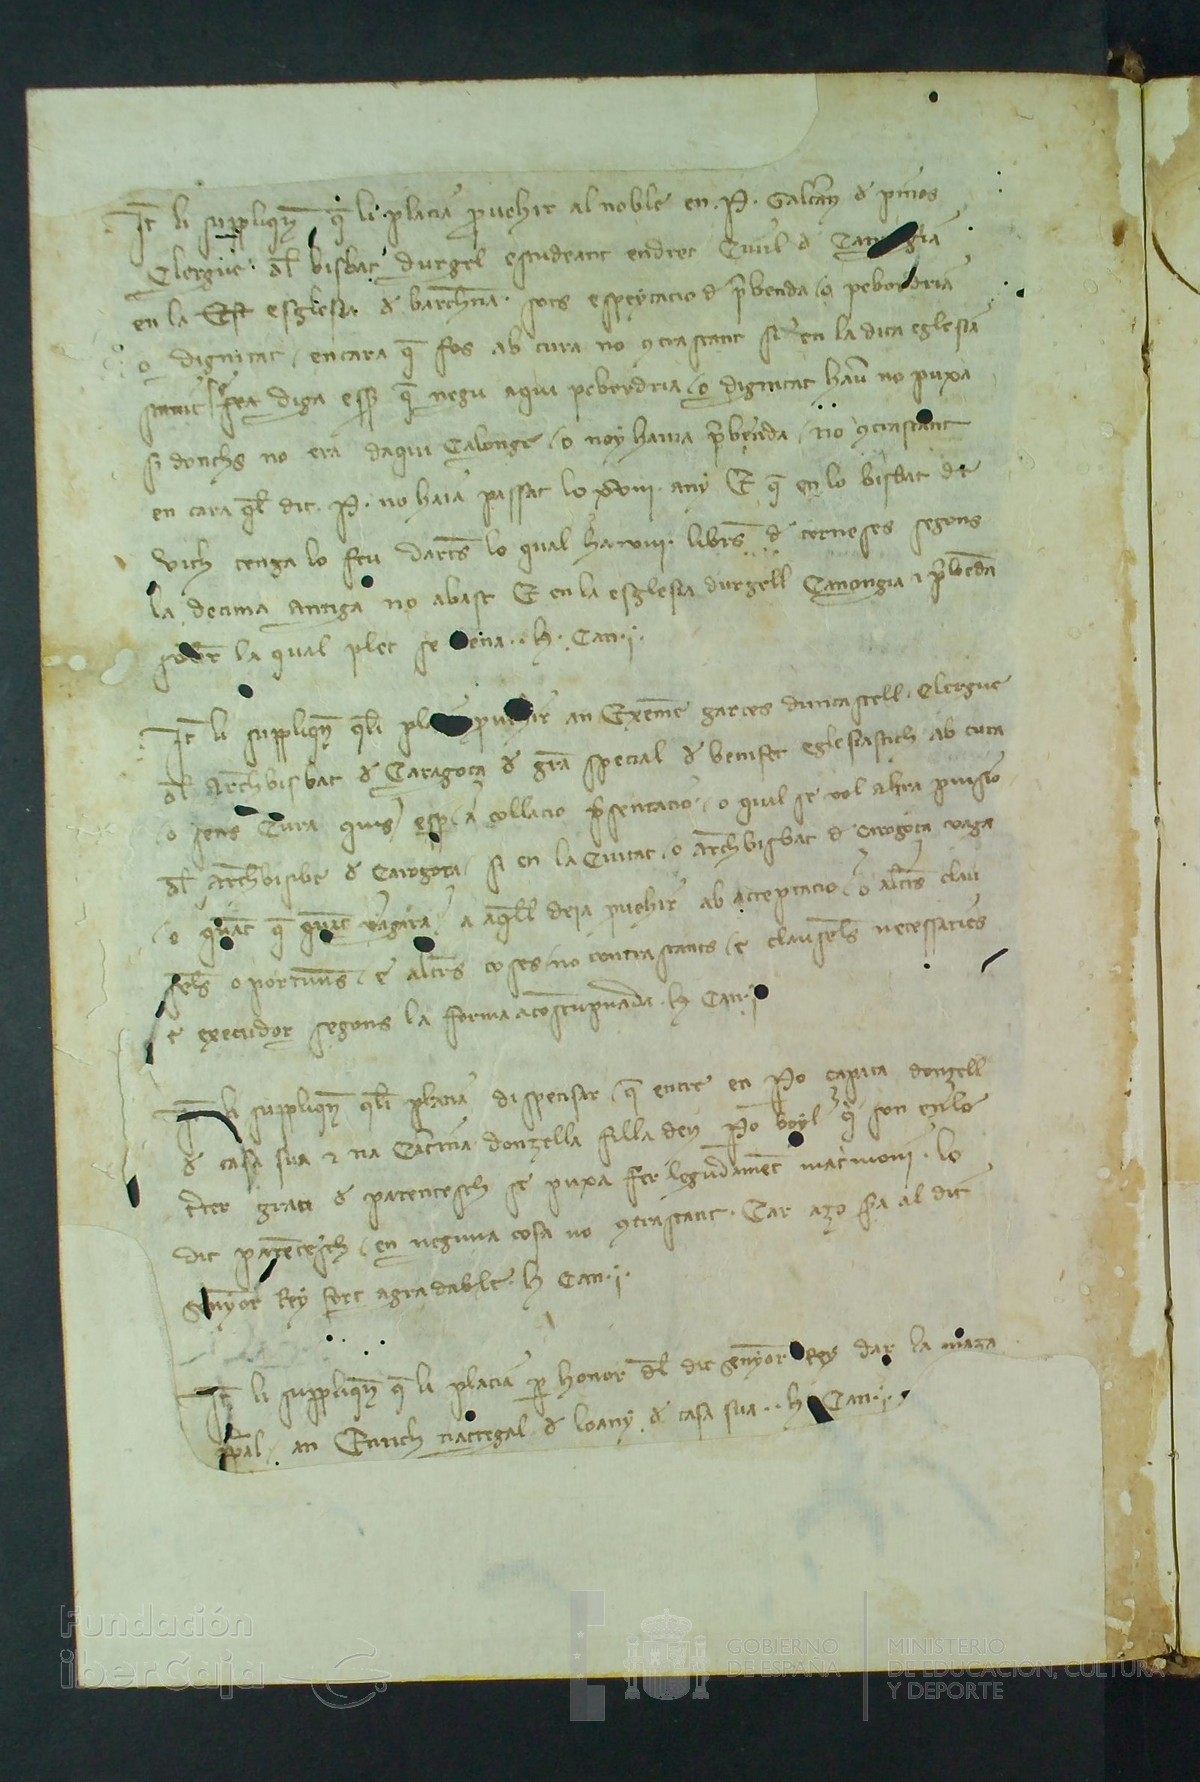 It li suppliqn q li placia pvehir al noble en .P. Galcan d pinos
Clergue dl bisbat durgel estudeant en dret Civil d Can gia
en la Est esglesia d barchna sots espeytacio d pbenda o pebordria
o dignitat encara q fos ab cura no contrastant si en la dita eglesia
diga q negu aqui pebordria o dignitat hau no puxa
si donchs no era daqui Calonge o noy havia pbenda no contrastant
en cara ql dit .P. no haia passat lo xviii any E q en lo bisbat de
Vich tenga lo feu dartes lo qual ha viii libres d torneses segons
la decima antiga no abast E en la esglesia durgell Canongia i pbenda
la qual plet se mena .. h. Can .i.
It li suppliqn qli pla puehir an Exeme garces dunCastell Clergue
dl Archbisbat d Caragoça d gra special d benifet eglesiastich ab cura
o sens Cura collacio psentacio o qual se vol altra puisio
dl Archbisbe d Caragoça si en la Ciutat o Archbisbat d Caragoça vaga
o quat q quat vagara a aqll deia puehir ab acceptacio o altres clau
seles oportunes e altres coses no contrastants e clauseles necessaries
e executor segons la forma acostumada h Can .i
It li suppliqn qli placia dispensar q entre en Po capata donzell
d casa sua i na Catina donzella filla den Po boyl q son en lo
terter grau d parentesch se puxa fer legudament matrimoni lo
dit parentesch en neguna cosa no contrastant. Car aço sra al dit
senyor Rey fort agradable . h Can .i.
It li suppliqn q li placia p honor dl dit senyor Rey dar la maça
an Enrich nattegal d loany d casa sua .. h Can .i.
Fundación
iberCaja
GOBIERNO
DE ESPAÑA
MINISTERIO
DE EDUCACIÓN, CULTURA
Y DEPORTE